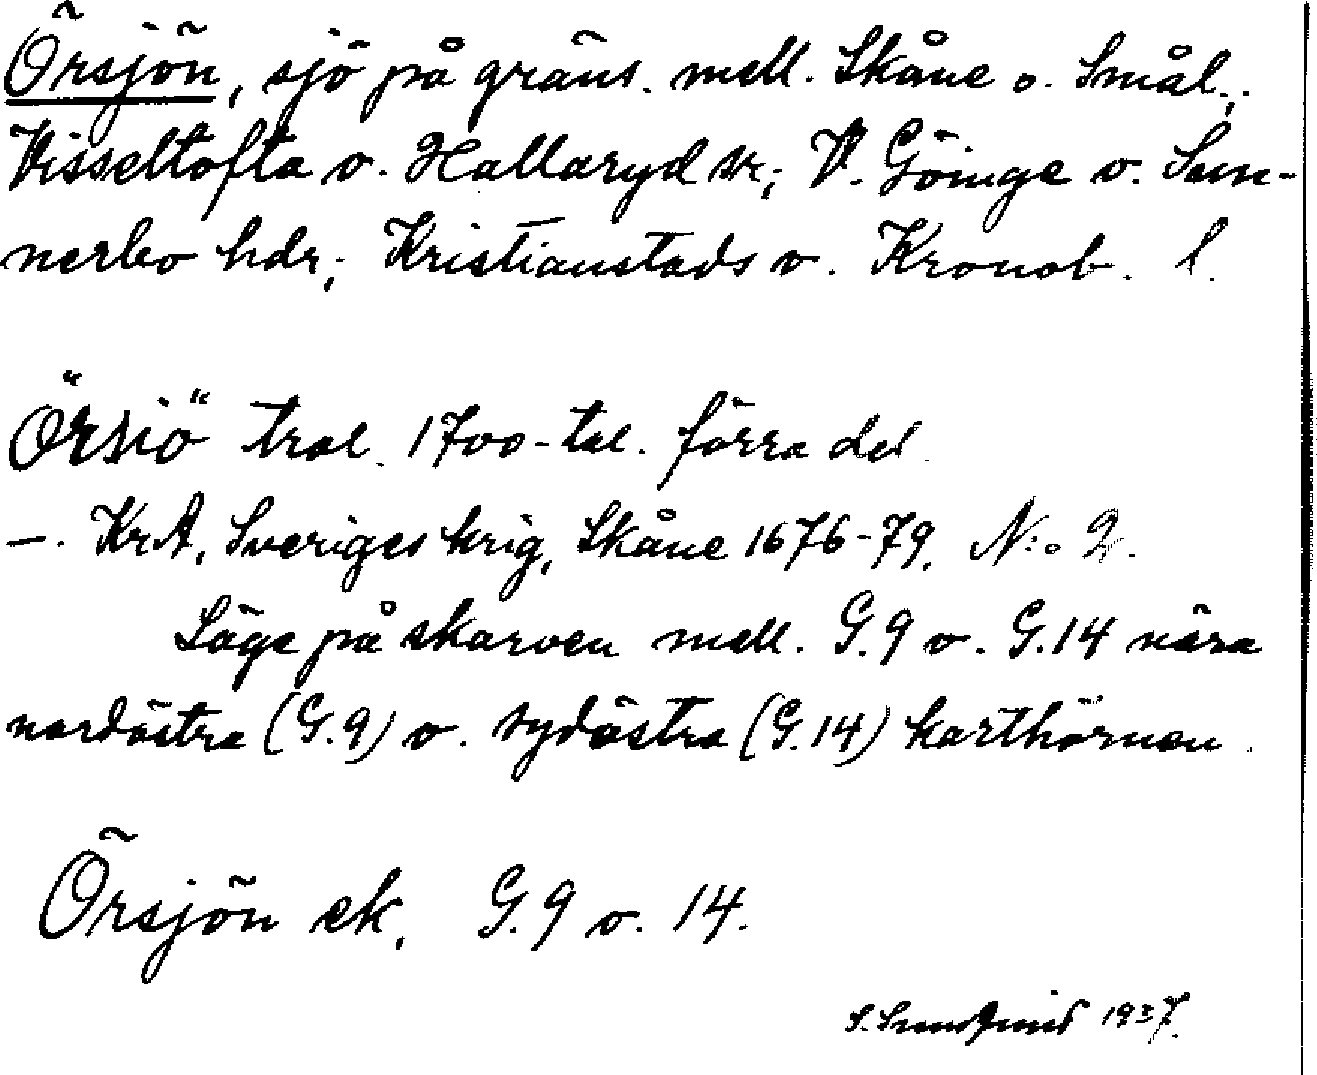 Örsjön, sjö på gräns. mell. Skåne o. Smål.;
Visseltofta o. Hallaryd sk; V. Göinge o. Sun-
nerbo hdr; Kristianstads o. Kronob. l.
Örsiö trol. 1700-tal. förra del.
–. KrA, Sveriges krig, Skåne 1676-79. N:o 2.
Läge på skarven mell. G.9 o. G.14 nära
nordöstra (G.9) o. sydöstra (G.14) karthörnen.
Örsjön ek, G.9 o. 14.
1937.